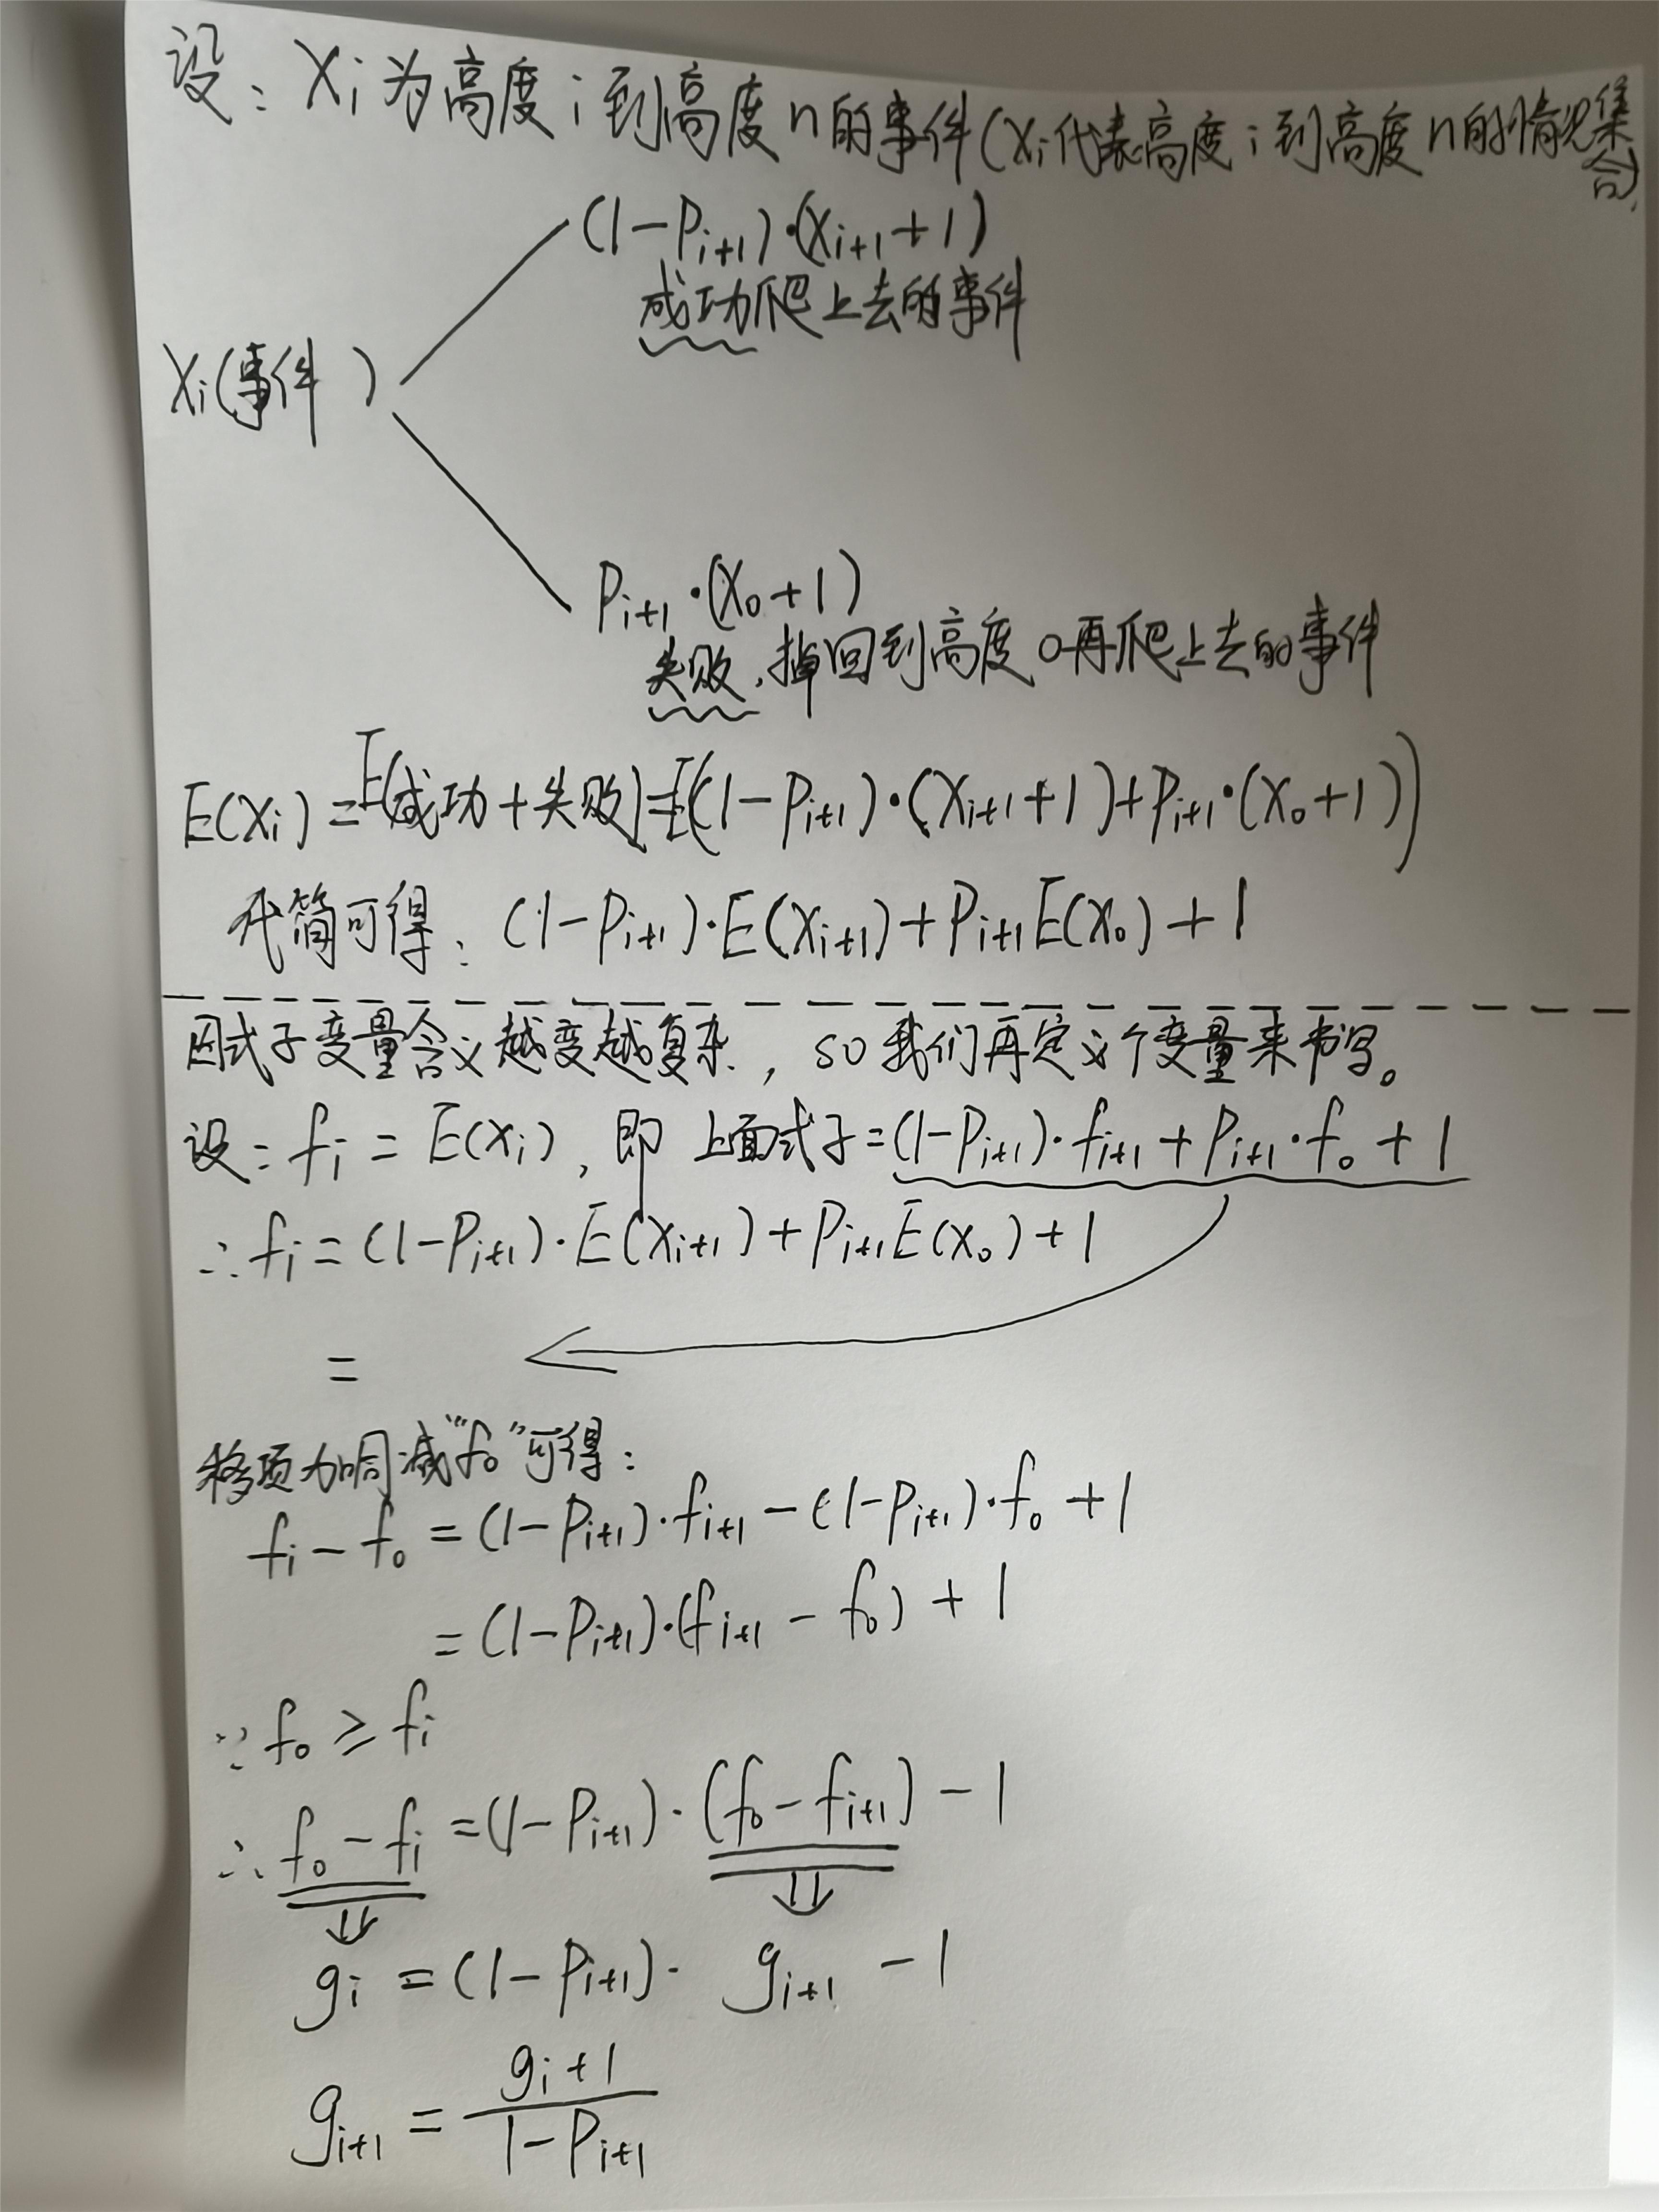 设：Xi为高度i到高度n的事件(Xi代表高度i到高度n的情况集合)
(1-Pi+1)·(Xi+1+1)
成功爬上去的事件
Xi(事件)
Pi+1·(X0+1)
失败,掉回到高度0再爬上去的事件
E(Xi)=E(成功+失败)=E((1-Pi+1)·(Xi+1+1)+Pi+1·(X0+1))
简可得：(1-Pi+1)·E(Xi+1)+Pi+1E(X0)+1
因式子变量含义越变越复杂，so我们再定义个变量来书写。
设：fi=E(Xi),即 上面式子=(1-Pi+1)·fi+1+Pi+1·f0+1
∴fi=(1-Pi+1)·E(Xi+1)+Pi+1E(X0)+1
=
移项加同减"f0"可得：
fi-f0=(1-Pi+1)·fi+1-(1-Pi+1)·f0+1
=(1-Pi+1)·(fi+1-f0)+1
∵f0≥fi
∴f0-fi=(1-Pi+1)·(f0-fi+1)-1
gi=(1-Pi+1)· gi+1 -1
gi+1=gi+1/1-Pi+1